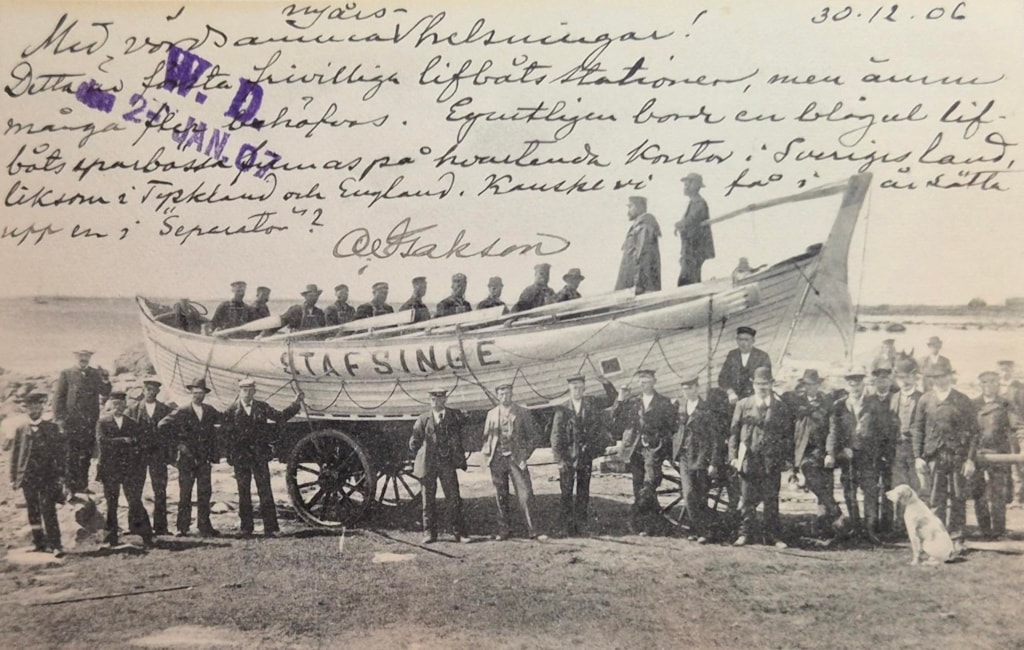 nyårs-
30.12.06
Med vördsamma helsningar!
Detta är första frivilliga lifbåts stationen, men ännu
många fler behöfvas. Egentligen borde en blågul lif-
båts sparbössa finnas på hvartenda Kontor i Sveriges land,
liksom i Tyskland och England. Kanske vi få i år sätta
upp en i "Separator"?
Isakson
W. D.
2- JAN. 07
STAFSINGE